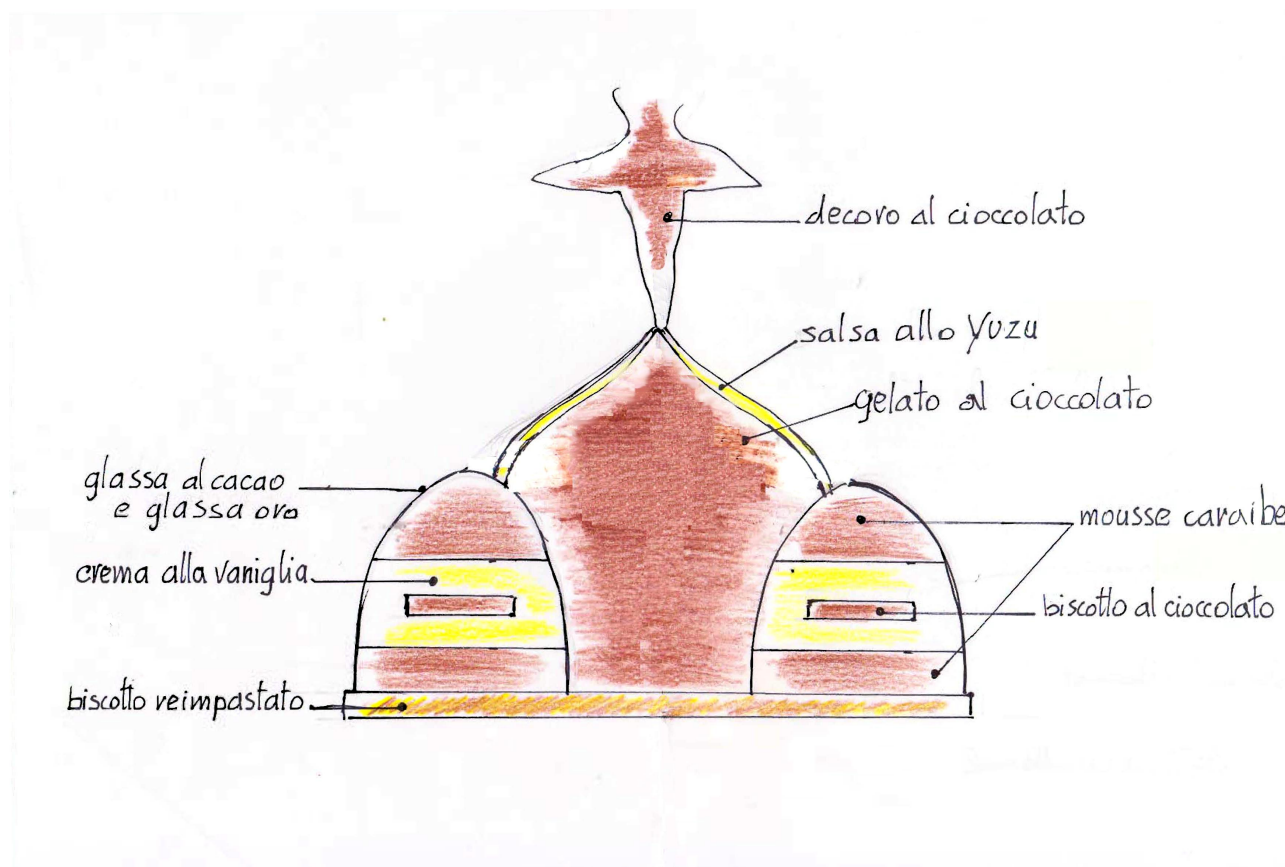 decoro al cioccolato
salsa allo yuzu
gelato al cioccolato
glassa al cacao
e glassa oro
mousse caraibe
crema alla vaniglia
biscotto al cioccolato
biscotto reimpastato